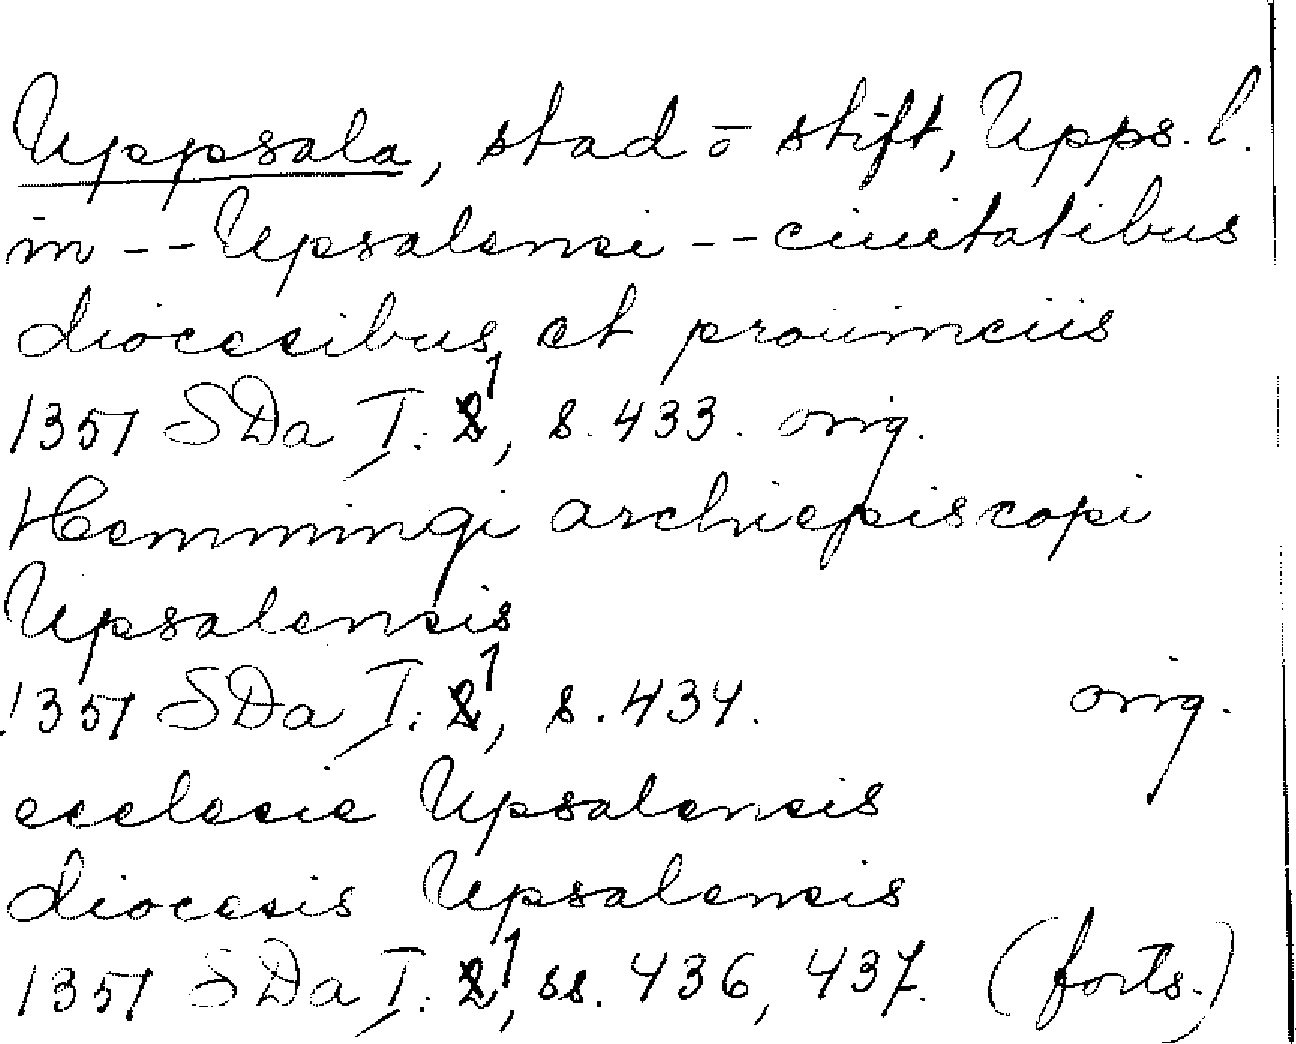 Uppsala, stad o stift, Upps. l.
in -- Upsalensi -- ciuitatibus
diocesibus et prouinciis
1357 SDa I: 1, s. 433. orig.
Hemmingi archiepiscopi
Upsalensis
1357 SDa I: 1, s. 434. orig.
ecclesie Upsalensis
diocesis Upsalensis
1357 SDa I: 1, ss. 436, 437. (forts.)